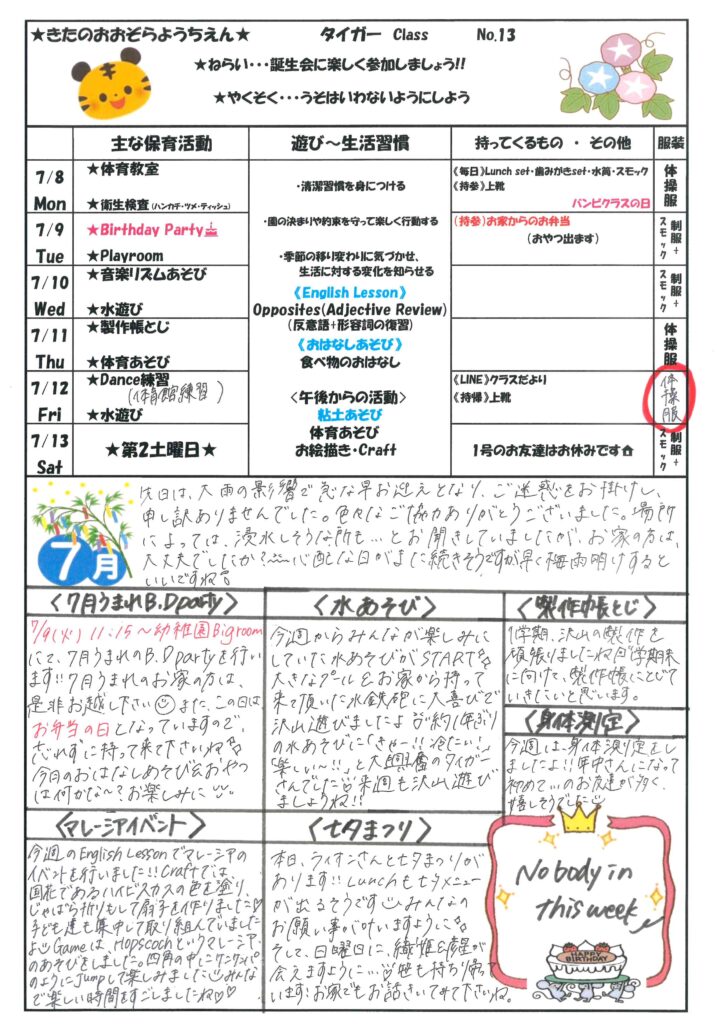 ★きたのおおぞらようちえん★ タイガー Class No.13
★ねらい・・・誕生会に楽しく参加しましょう!!
★やくそく・・・うそはいわないようにしよう
主な保育活動 遊び～生活習慣 持ってくるもの ・ その他 服装
7/8 Mon
★体育教室
★衛生検査(ハンカチ・ツメ・ティッシュ)
・清潔習慣を身につける
《毎日》Lunch set・歯みがきset・水筒・スモック
《持参》上靴
バンビクラスの日
体操服
7/9 Tue
★Birthday Party
★Playroom
・園の決まりや約束を守って楽しく行動する
・季節の移り変わりに気づかせ、
(持参)お家からのお弁当
(おやつ出ます)
制服+スモック
7/10 Wed
★音楽リズムあそび
★水遊び
生活に対する変化を知らせる
《English Lesson》
Opposites(Adjective Review)
制服+スモック
7/11 Thu
★製作帳とじ
★体育あそび
(反意語+形容詞の復習)
《おはなしあそび》
食べ物のおはなし
体操服
7/12 Fri
★Dance練習
(体育館練習)
★水遊び
<午後からの活動>
粘土あそび
《LINE》クラスだより
《持帰》上靴
体操服
7/13 Sat
★第2土曜日★
体育あそび
お絵描き・Craft
1号のお友達はお休みです
制服+スモック
7月
先日は、大雨の影響で急な早お迎えとなり、ご迷惑をお掛けし、
申し訳ありませんでした。色々なご協力ありがとうございました。場所
によっては、浸水しそうな所も…とお聞きしていましたが、お家の方は、
大丈夫でしたか？心配な日がまだ続きそうですが早く梅雨明けすると
いいですね
〈7月うまれB.Dparty〉
7/9(火) 11:15～幼稚園Bigroom
にて、7月うまれのB.Dpartyを行い
ます!!7月うまれのお家の方は、
是非お越し下さい また、この日は、
お弁当の日となっていますので、
忘れずに持って来て下さいね
今日のおはなしあそび おやつ
は何かな～？お楽しみに
〈水あそび〉
今週からみんなが楽しみに
していた水あそびがSTART
大きなプールとお家から持って
来て頂いた水鉄砲に大喜びで
沢山遊びましたよ 約1年ぶり
の水あそびに「きゃー!!冷たい!」
「楽しい～!!」と大興奮のタイガー
さんでした!!来週も沢山遊び
ましょうね!!
〈製作帳とじ〉
1学期、沢山の製作を
頑張りましたね 学期末
に向けて、製作帳にとじて
いきたいと思います。
〈身体測定〉
今週は、身体測定をし
ましたよ!!年中さんになって
初めて…のお友達が多く、
嬉しそうでした
〈マレーシアイベント〉
今週のEnglish Lessonでマレーシアの
イベントを行いました!!Craftでは、
国花であるハイビスカスの色を塗り、
じゃばら折りもして扇子を作りました
子ども達も集中して取り組んでいました
よ Gameは、Hopscochというマレーシア
のあそびをしました。四角の中にケンケンパ
のようにJumpして楽しみました みんな
で楽しい時間をすごしましたね♡♡
〈七夕まつり〉
本日、ライオンさんと七夕まつりが
あります!!Lunchも七夕メニュー
が出るそうです みんなの
お願い事が叶いますように
そして、日曜日に、織姫&彦星が
会えますように… 笹も持ち帰って
います!お家でもお話きいてみて下さいね。
Nobody in
this week
HAPPY BIRTHDAY